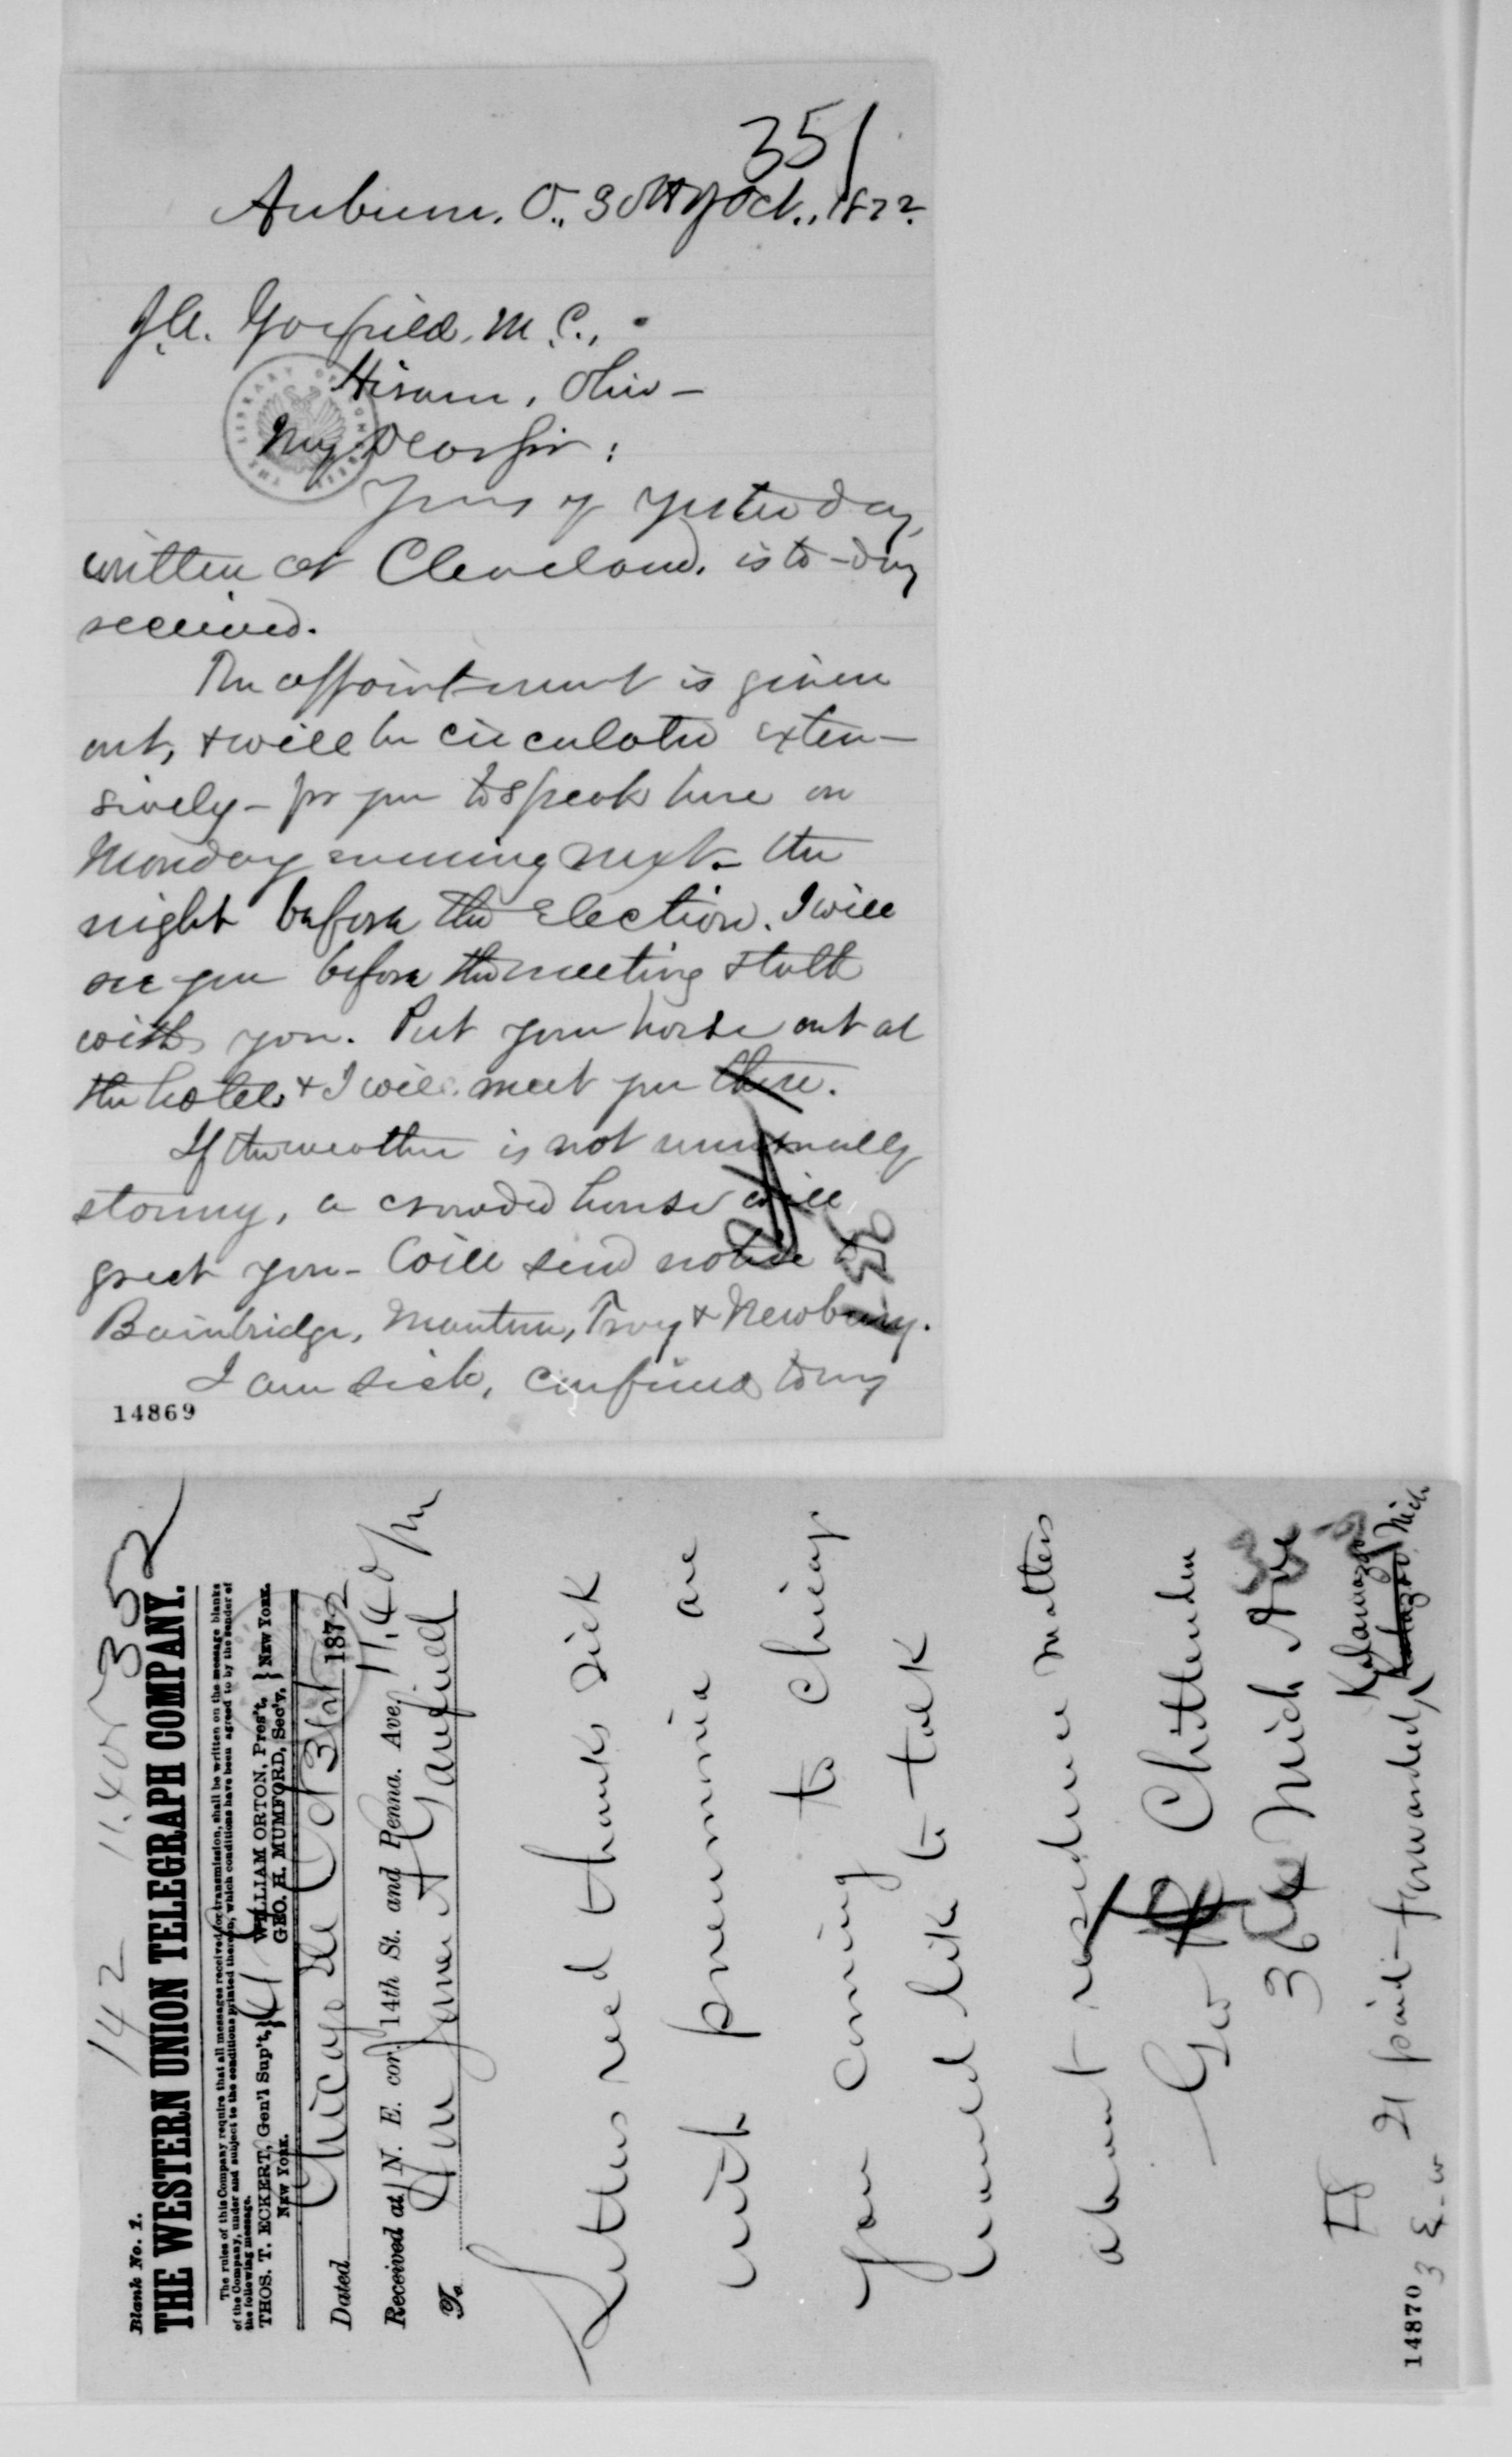 351
Auburn, O., 30th of Oct., 1872.
J.A. Garfield, M.C.,
Hiram, Ohio—
My Dear Sir:
Yours of yesterday,
written at Cleveland, is to-day
received.
The appointment is given
out, & will be circulated exten-
sively - for you to speak here on
Monday evening next - the
night before the election. I will
see you before the meeting & talk
with you. Put your horse out at
the hotel, & I will meet you there.
If the weather is not unusually
stormy, a crowded house will
greet you - Will send notice to
Bainbridge, Mantua, Troy & Newbury.
I am sick, confined to my
14869
142 11.40 352
Blank No. 1.
THE WESTERN UNION TELEGRAPH COMPANY.
The rules of this Company require that all messages received for transmission, shall be written on the message blanks
of the Company, under and subject to the conditions printed thereon, which conditions have been agreed to by the sender of
the following message.
THOS. T. ECKERT, Gen'l Sup't, NEW YORK. WILLIAM ORTON, Pres't, GEO. H. MUMFORD, Sec'y, NEW YORK.
Dated Chicago Ill Oct 31st 1872
Received at N. E. cor. 14th St. and Penna. Ave. 11.40 pm
To Hon James A Garfield
Letters recd thanks sick
with pneumonia are
you coming to Chicago
would like to talk
about residence matters
Geo R Chittenden
Mich Ave
Kalamazoo
21 paid - forwarded Mich
14870